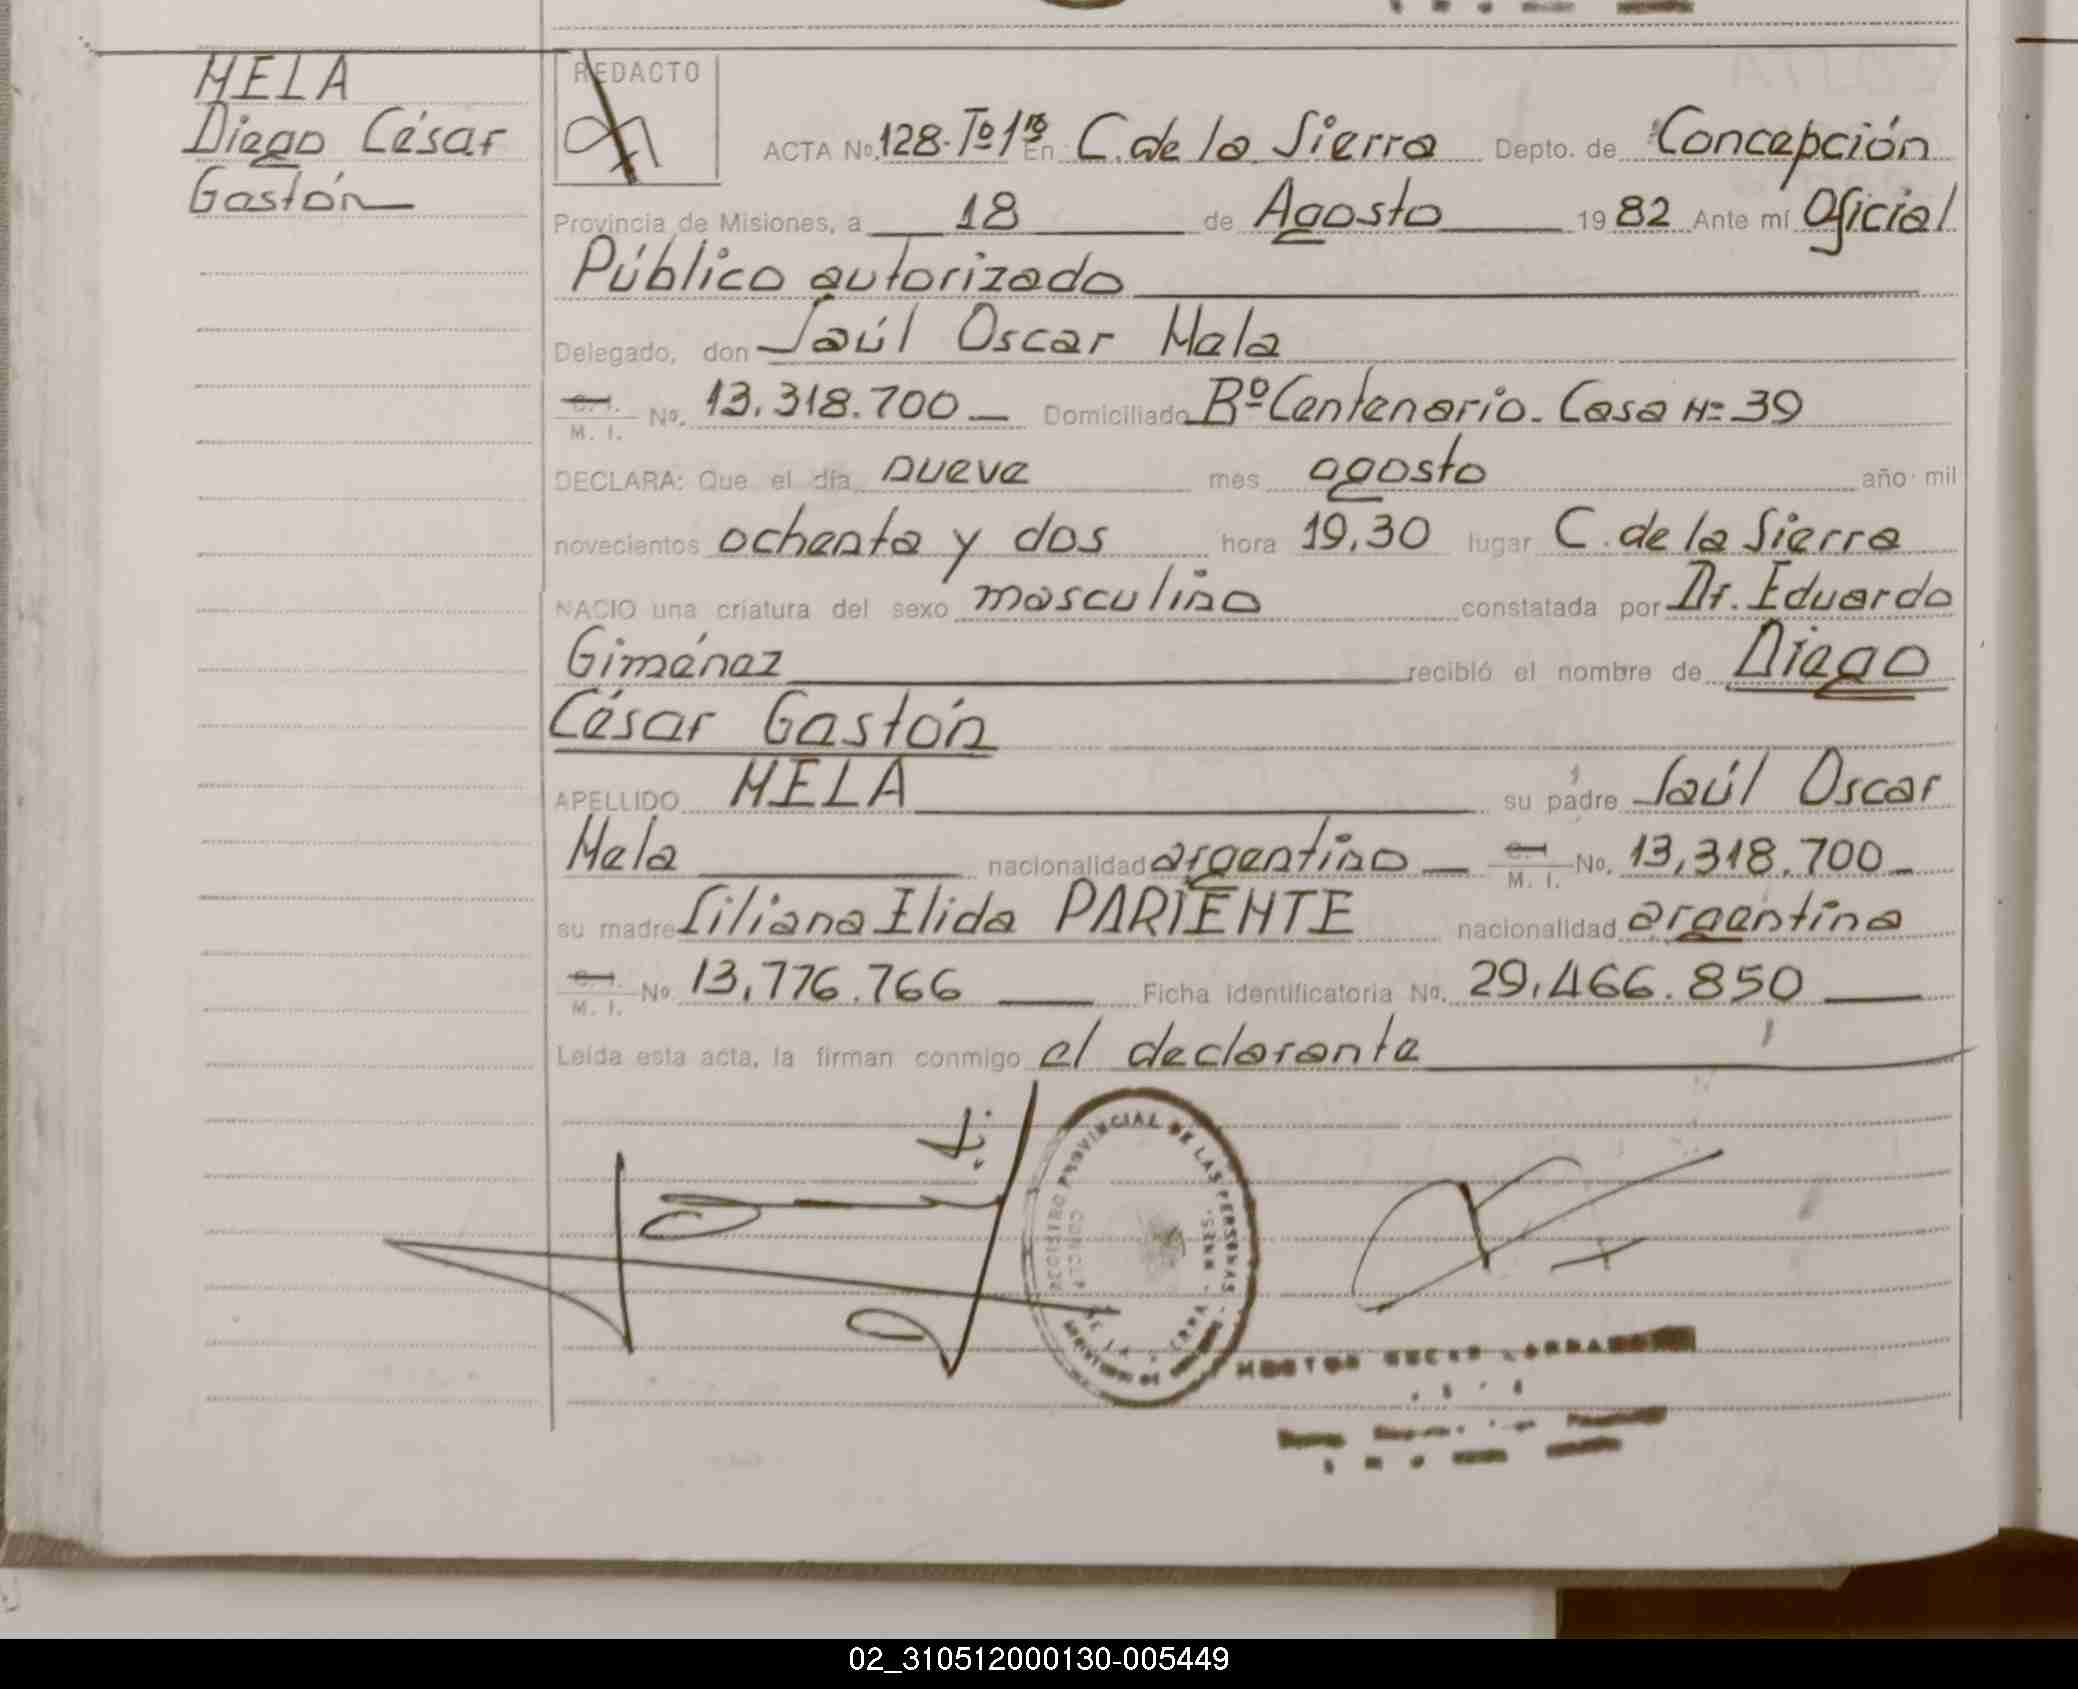 MELA
Diego César
Gastón
REDACTO
ACTA No. 128-Tº1ro En C. de la Sierra Depto. de Concepción
Provincia de Misiones, a 18 de Agosto 1982 Ante mí Oficial
Público autorizado
Delegado, don Saúl Oscar Mela
C. I. M. I. No. 13.318.700 Domiciliado Bº Centenario. Casa Nº 39
DECLARA: Que el día nueve mes agosto año mil
novecientos ochenta y dos hora 19,30 lugar C. de la Sierra
NACIO una criatura del sexo masculino constatada por Dr. Eduardo
Giménez recibió el nombre de Diego
César Gastón
APELLIDO MELA su padre Saúl Oscar
Mela nacionalidad argentino C. I. M. I. No. 13,318.700
su madre Liliana Elida PARIENTE nacionalidad argentina
C. I. M. I. No 13,776.766 Ficha identificatoria No. 29,466.850
Leída esta acta, la firman conmigo el declarante
REGISTRO PROVINCIAL DE LAS PERSONAS
02_310512000130-005449